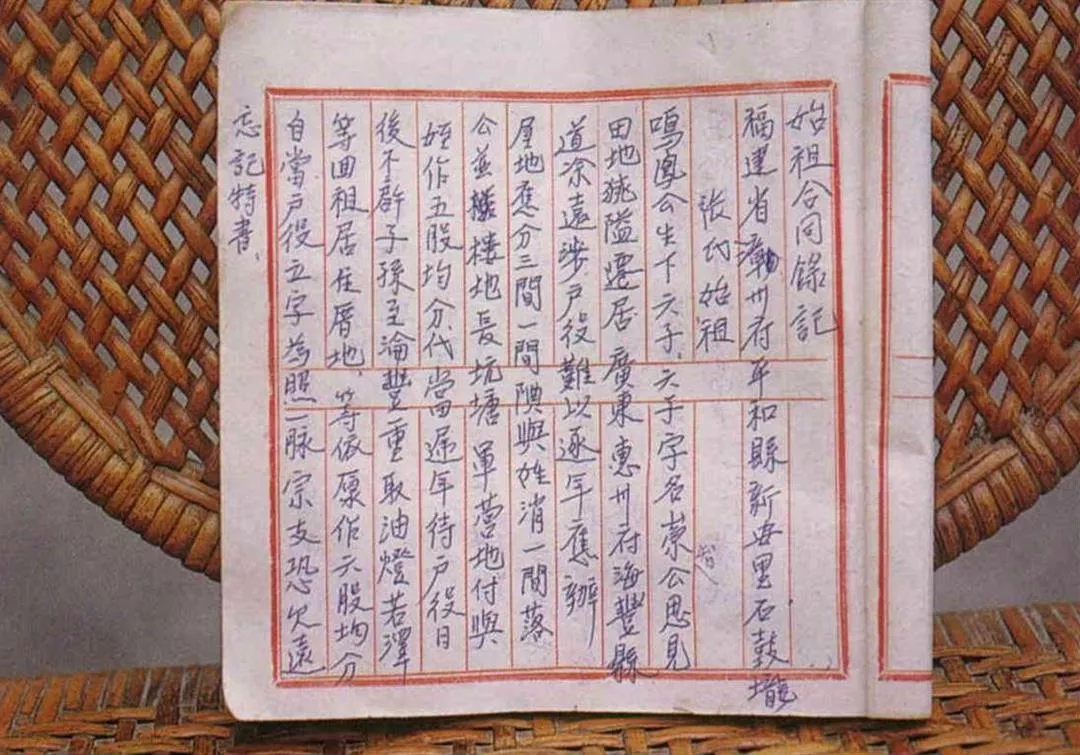 始祖合同錄記
福建省漳州府平和縣新安里石鼓壠
張代始祖
鳴鳳公生下六子、六子字名崇公思見
田地狹隘遷居廣東惠州府海豐縣
道凃遠涉戶役難以逐年應辦
屋地應分三間一間與姓消一間落
公並樓地長坑塘軍營地付與
姪作五股均分代當遞年待戶役日
後不辟子孫至淪豐重取油燈若澤
等回祖居住厝地、等依原作六股均分
自當戶役立字為照一脉宗支恐久遠
忘記特書、